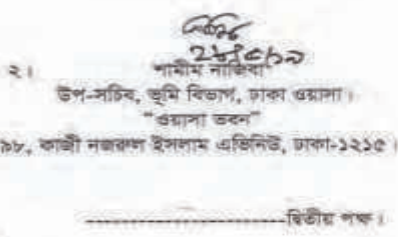 ২৮/৫/১৯
২।
শামীম নাজিবা
উপ-সচিব, ভূমি বিভাগ, ঢাকা ওয়াসা।
"ওয়াসা ভবন"
৯৮, কাজী নজরুল ইসলাম এভিনিউ, ঢাকা-১২১৫।
-------------------------দ্বিতীয় পক্ষ।